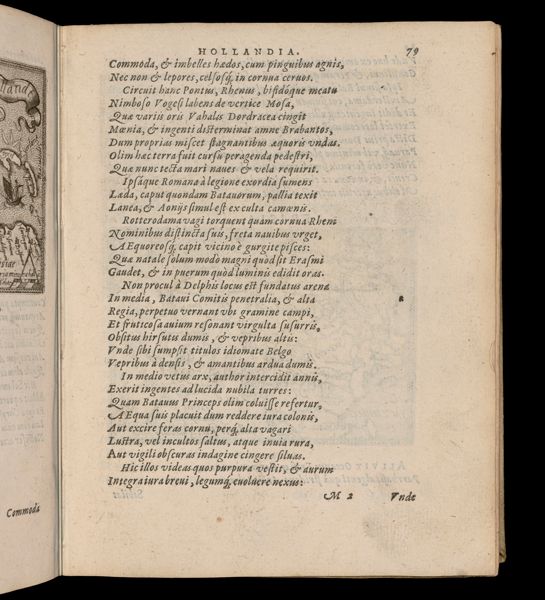 HOLLANDIA. 79
Commoda, & imbelles hædos, cum pinguibus agnis,
Nec non & lepores, celsosq́, in cornua ceruos.
Circuit hanc Pontus, Rhenus, bifidóque meatu
Nimboso Vogesi labens de vertice Mosa,
Quæ variis oris Vahalis Dordracea cingit
Mœnia, & ingenti disterminat amne Brabantos,
Dum proprias miscet stagnantibus æquoris vndas.
Olim hac terra fuit cursu peragenda pedestri,
Quæ nunc tecta mari naues & vela requirit.
Ipsáque Romana à legione exordia sumens
Leda, caput quondam Batauorum, pallia texit
Lanea, & Aonijs simul est exculta camœnis.
Rotterodama vagi torquent quàm cornua Rheni
Nominibus distincta suis, freta nauibus vrget,
AEquoreosq́, capit vicino è gurgite pisces:
Quæ natale solum modò magni quòd sit Erasmi
Gaudet, & in puerum quòd luminis edidit oras.
Non procul à Delphis locus est fundatus arena
In media, Bataui Comitis penetralia, & alta
Regia, perpetuo vernant vbi gramine campi,
Et fruticosa auium resonant virgulta susurris,
Obsitus hirsutis dumis, & vepribus altis:
Vnde sibi sumpsit titulos idiomate Belgo
Vepribus à densis, & amantibus ardua dumis.
In medio vetus arx, author intercidit annis,
Exerit ingentes ad lucida nubila turres:
Quam Batauus Princeps olim coluisse refertur,
AEqua suis placuit dum reddere iura colonis,
Aut excire feras cornu, perq́, alta vagari
Lustra, vel incultos saltus, atque inuia rura,
Aut vigili obscuras indagine cingere siluas.
Hic illos videas quos purpura vestit, & aurum
Integra iura breui, legumq́, euoluere nexus:
M 2 Vnde
Commoda